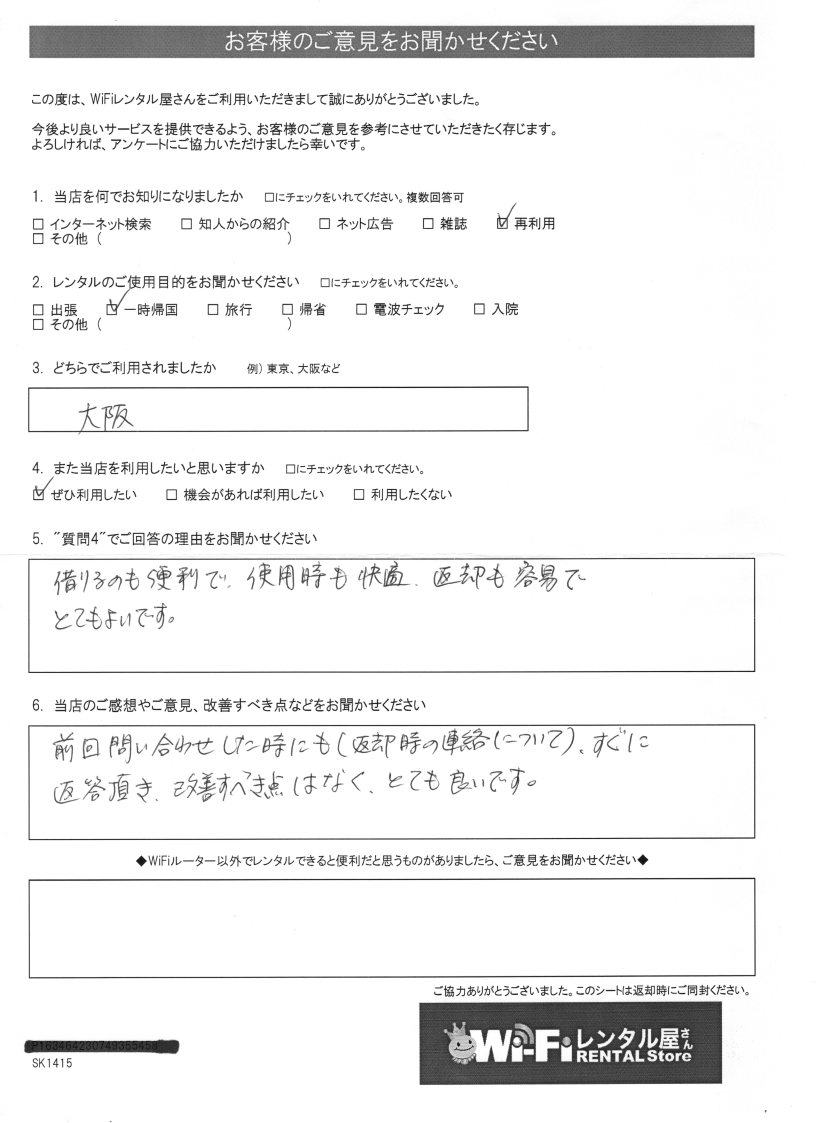 お客様のご意見をお聞かせください
この度は、WiFiレンタル屋さんをご利用いただきまして誠にありがとうございました。
今後より良いサービスを提供できるよう、お客様のご意見を参考にさせていただきたく存じます。
よろしければ、アンケートにご協力いただけましたら幸いです。
1. 当店を何でお知りになりましたか □にチェックをいれてください。複数回答可
□ インターネット検索 □ 知人からの紹介 □ ネット広告 □ 雑誌 ☑ 再利用
□ その他 ( )
2. レンタルのご使用目的をお聞かせください □にチェックをいれてください。
□ 出張 ☑ 一時帰国 □ 旅行 □ 帰省 □ 電波チェック □ 入院
□ その他 ( )
3. どちらでご利用されましたか 例) 東京、大阪など
大阪
4. また当店を利用したいと思いますか □にチェックをいれてください。
☑ ぜひ利用したい □ 機会があれば利用したい □ 利用したくない
5. "質問4"でご回答の理由をお聞かせください
借りるのも便利で、使用時も快適、返却も容易で
とてもよいです。
6. 当店のご感想やご意見、改善すべき点などをお聞かせください
前回問い合わせした時にも(返却時の連絡について)、すぐに
返答頂き、改善すべき点はなく、とても良いです。
◆WiFiルーター以外でレンタルできると便利だと思うものがありましたら、ご意見をお聞かせください◆
ご協力ありがとうございました。このシートは返却時にご同封ください。
Wi-Fiレンタル屋さん
RENTAL Store
SK1415